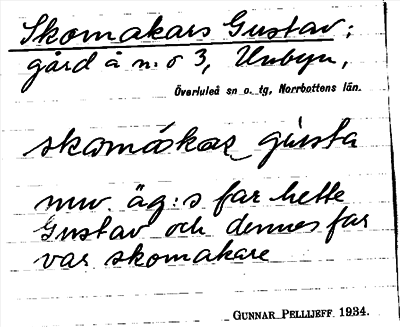 Skomakars Gustav;
gård å n:o 3, Unbyn,
Överluleå sn o. tg, Norrbottens län.
skomakar gusta
nuv. äg:s far hette
Gustav och dennes far
var skomakare
GUNNAR PELLIJEFF 1934.